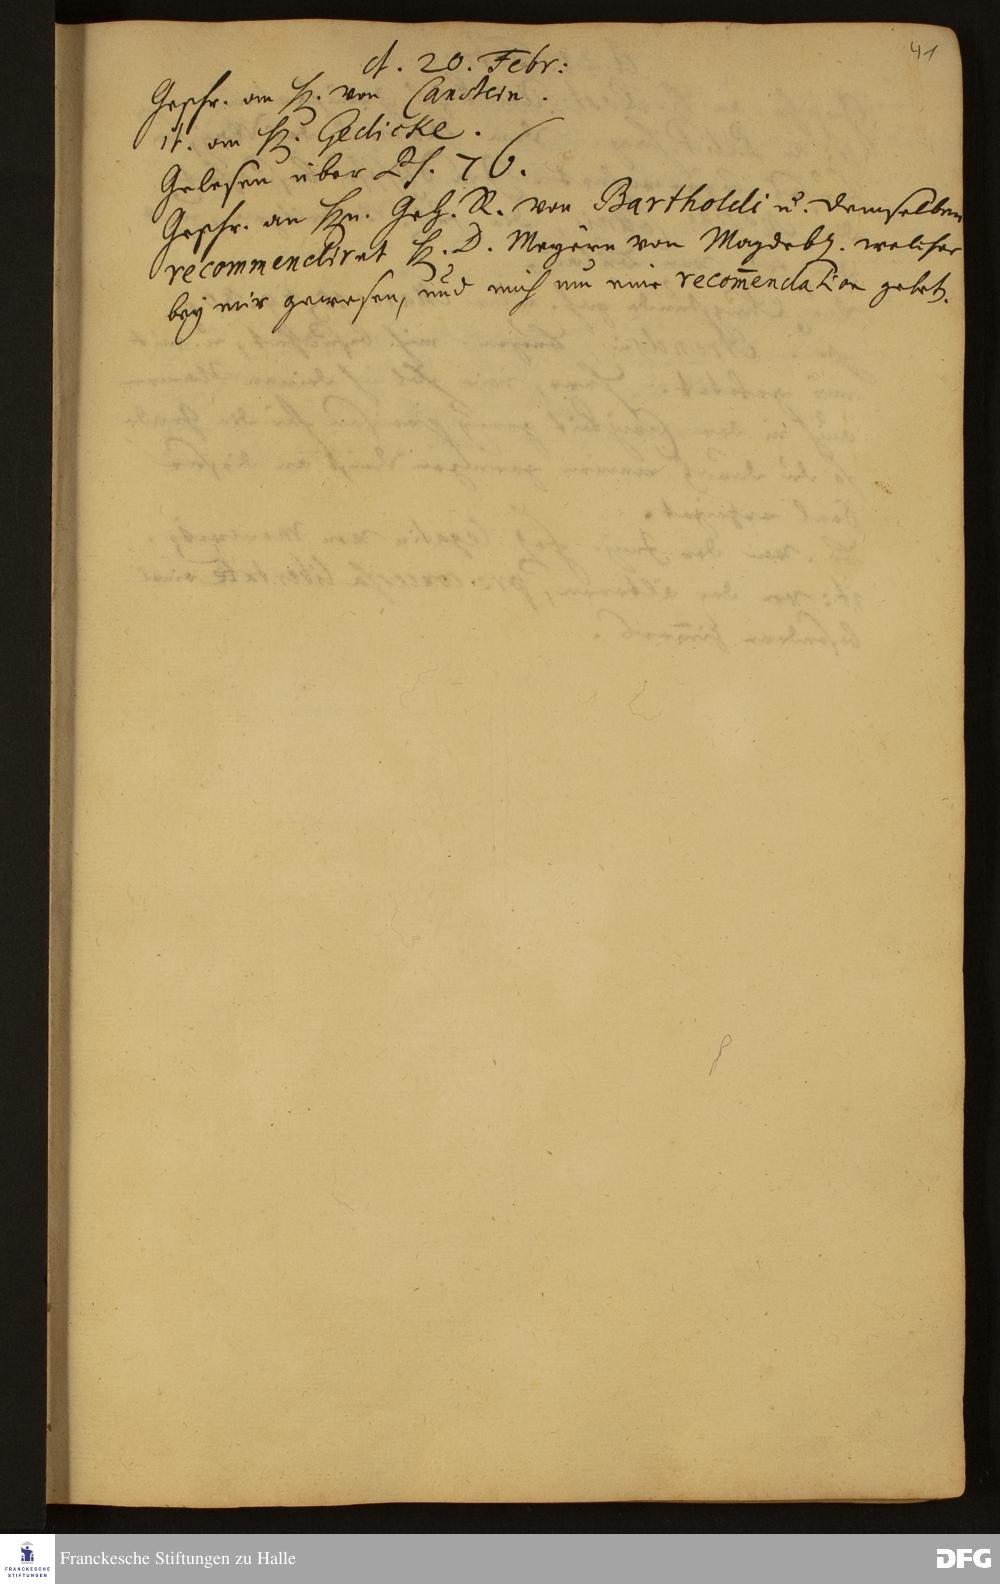 41
d. 20. Febr:
Geschr. an H. von Canstein.
it. an H. Gedicke.
Gelesen über Ps. 76.
Geschr. an Hn. Geh. R. von Bartholdi u. demselben
recommendiret H. D. Meyern von Magdeb. welcher
bey mir gewesen, und mich um eine recom̄endation gebet.
Franckesche Stiftungen zu Halle
FRANCKESCHE
STIFTUNGEN
DFG